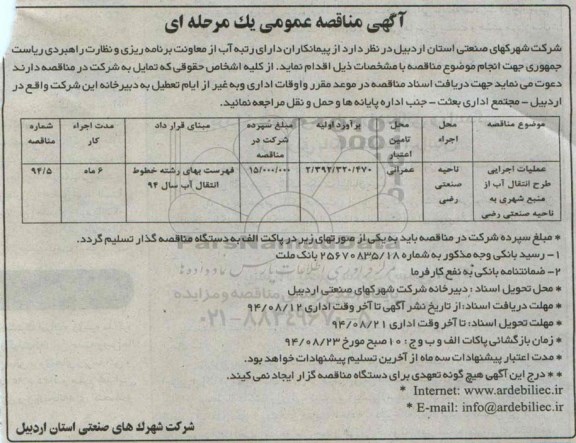 آگهی مناقصه عمومی یك مرحله ای
شرکت شهرکهای صنعتی استان اردبیل در نظر دارد از پیمانکاران دارای رتبه آب از معاونت برنامه ریزی و نظارت راهبردی ریاست
جمهوری جهت انجام موضوع مناقصه با مشخصات ذیل اقدام نماید. از کلیه اشخاص حقوقی که تمایل به شرکت در مناقصه دارند
دعوت می نماید جهت دریافت اسناد مناقصه در موعد مقرر و اوقات اداری وبه غیر از ایام تعطیل به دبیرخانه این شرکت واقع در
اردبیل - مجتمع اداری بعثت - جنب اداره پایانه ها و حمل و نقل مراجعه نمائید.
موضوع مناقصه | محل اجراء | محل تامین اعتبار | برآورد اولیه | مبلغ سپرده شرکت در مناقصه | مبنای قرار داد | مدت اجراء کار | شماره مناقصه
عملیات اجرایی طرح انتقال آب از منبع شهری به ناحیه صنعتی رضی | ناحیه صنعتی رضی | عمرانی | ۲/۳۹۲/۳۲۰/۴۷۰ | ۱۵/۰۰۰/۰۰۰ | فهرست بهای رشته خطوط انتقال آب سال ۹۴ | ۶ ماه | ۹۴/۵
* مبلغ سپرده شرکت در مناقصه باید به یکی از صورتهای زیر در پاکت الف به دستگاه مناقصه گذار تسلیم گردد.
۱- رسید بانکی وجه مذکور به شماره ۲۵۶۷۰۸۳۵/۱۸ بانک ملت
۲- ضمانتنامه بانکی به نفع کارفرما
* محل تحویل اسناد : دبیرخانه شرکت شهرکهای صنعتی اردبیل
* مهلت دریافت اسناد: از تاریخ نشر آگهی تا آخر وقت اداری ۹۴/۰۸/۱۲
* مهلت تحویل اسناد: تا آخر وقت اداری ۹۴/۰۸/۲۱
* زمان بازگشائی پاکات الف و ب و ج : ۱۰ صبح مورخ ۹۴/۰۸/۲۳
* مدت اعتبار پیشنهادات سه ماه از آخرین تسلیم پیشنهادات خواهد بود.
* * درج این آگهی هیچ گونه تعهدی برای دستگاه مناقصه گزار ایجاد نمی کند.
* Internet: www.ardebiliec.ir
* E-mail: info@ardebiliec.ir
شرکت شهرك های صنعتی استان اردبیل
ParsNamadData
۰۲۱-۸۸۳۴۹۶۷۰-۵